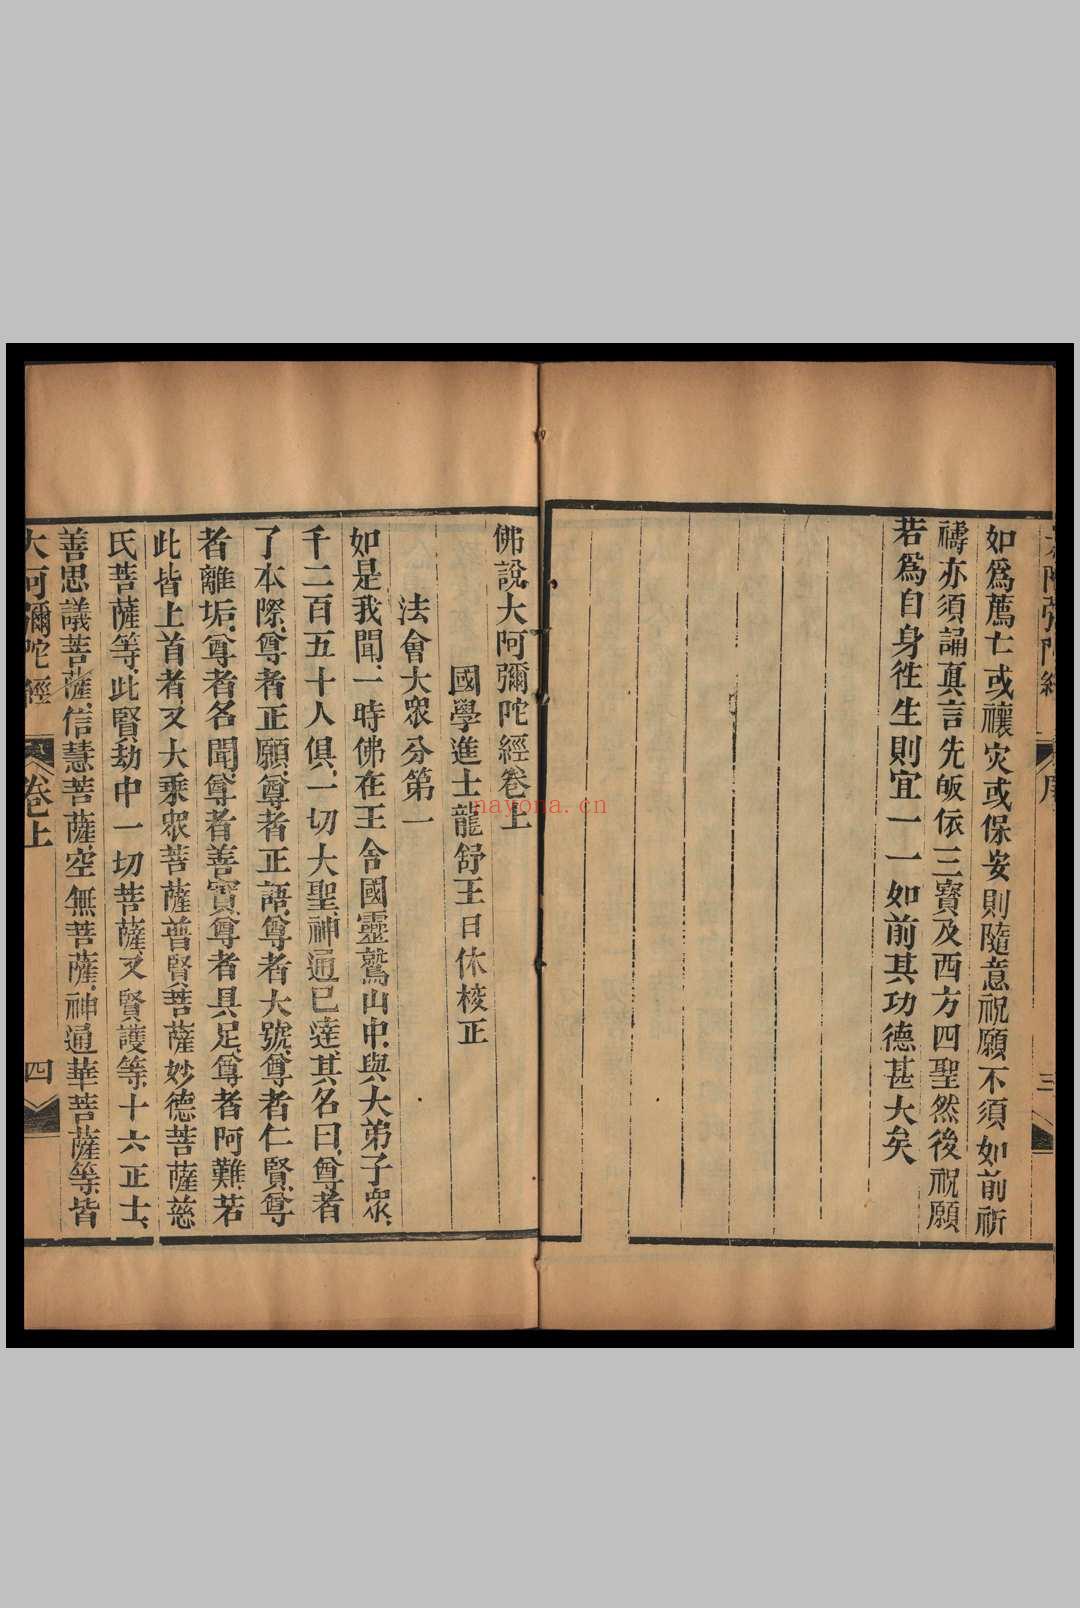 如爲薦亡或禳灾或保安則隨意祝願不須如前祈
禱亦須誦真言先皈依三寶及西方四聖然後祝願
若爲自身徃生則宜一一如前其功德甚大矣
三
佛說大阿彌陀經卷上
國學進士龍舒王日休校正
法會大衆分第一
如是我聞一時佛在王舍國靈鷲山中與大弟子衆
千二百五十人俱一切大聖神通已達其名曰尊者
了本際尊者正願尊者正語尊者大號尊者仁賢尊
者離垢尊者名聞尊者善實尊者具足尊者阿難若
此皆上首者又大乘衆菩薩普賢菩薩妙德菩薩慈
氏菩薩等此賢劫中一切菩薩又賢護等十六正士
善思議菩薩信慧菩薩空無菩薩神通華菩薩等皆
大阿彌陀經 卷上 四
nayona.cn